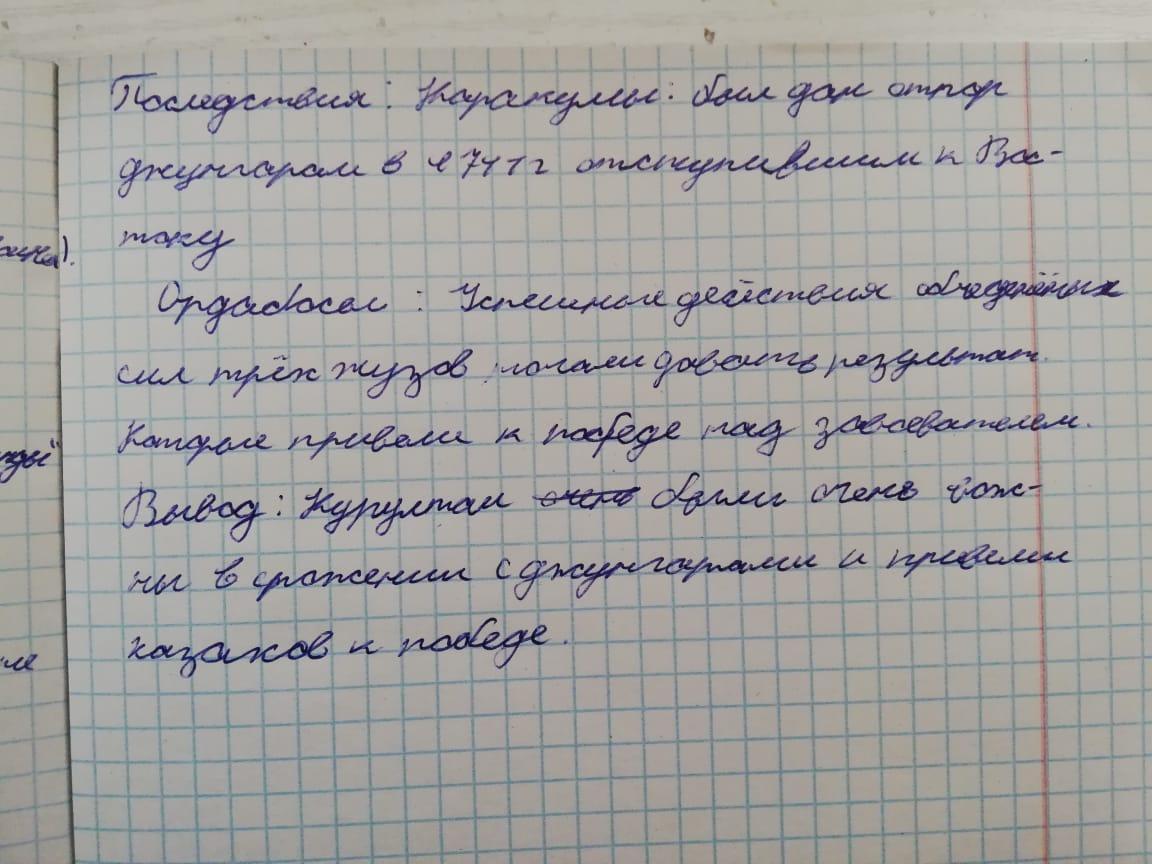 Последствия: Каракумы: был дан отпор
джунгарам в 1711 г отступившим к Вос-
току
ична).
Ордабасы: Успешные действия объеденённых
сил трёх жузов, начали давать результат.
Которые привели к победе над завоевателем.
нды"
Вывод: Курултаи очень были очень важ-
ны в сражении с джунгарами и привели
казахов к победе.
ие